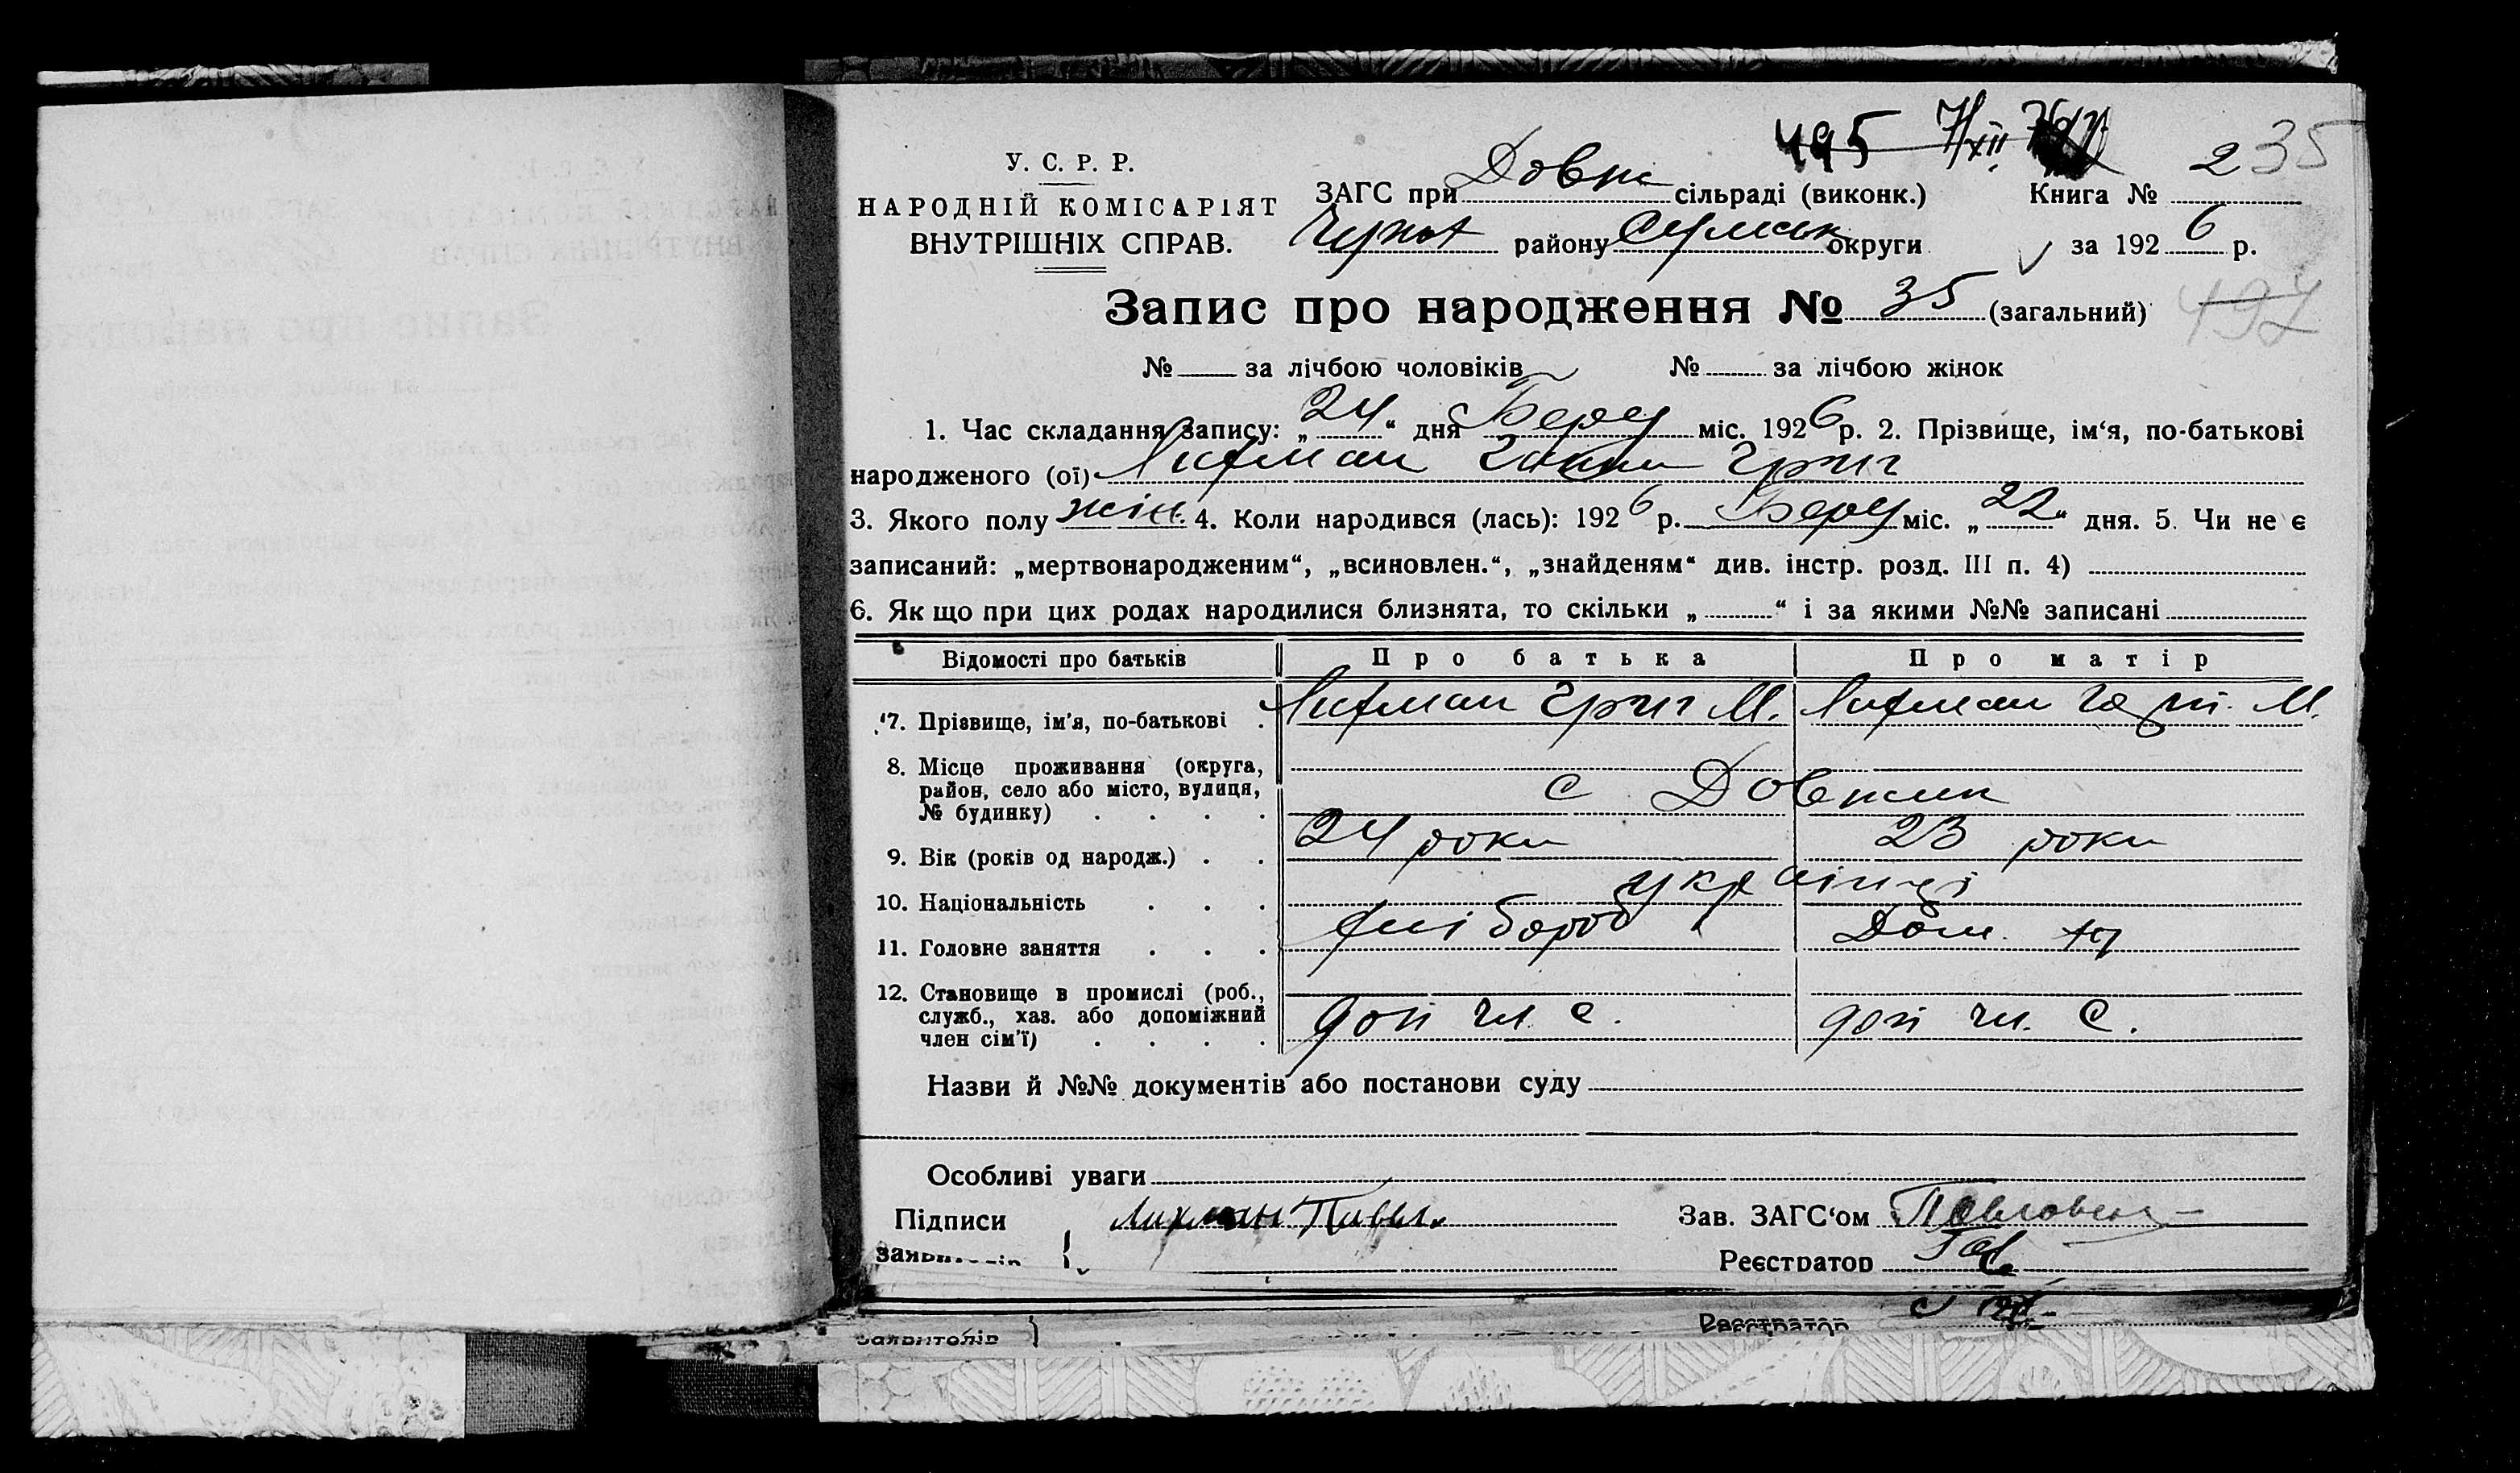 495 7/XII
У. С. Р. Р.
НАРОДНІЙ КОМІСАРІЯТ
ВНУТРІШНІХ СПРАВ.
ЗАГС при Довж сільраді (виконк.) Книга № 2 35
району Сумськ округи за 1926 р.
Запис про народження № 35 (загальний) 497
№ за лічбою чоловіків № за лічбою жінок
1. Час складання запису: „24“ дня Берез міс. 1926 р. 2. Прізвище, ім‘я, по-батькові
народженого (ої) Лихман Ганна Григ
3. Якого полу жін. 4. Коли народився (лась): 1926 р. Берез міс. „22“ дня. 5. Чи не є
записаний: „мертвонародженим“, „всиновлен.“, „знайденям“ див. інстр. розд. III п. 4)
6. Якщо при цих родах народилися близнята, то скільки „ “ і за якими №№ записані
Відомості про батьків Про батька Про матір
7. Прізвище, ім’я, по-батькові . Лихман Григ М. Лихман М.
8. Місце проживання (округа,
район, село або місто, вулиця,
№ будинку) . . . . с Довжик
9. Вік (років од народж.) . . 24 роки 23 роки
10. Національність . . . українці
11. Головне заняття . . . хлібороб Дом.
12. Становище в промислі (роб.,
служб., хаз. або допоміжний
член сім’ї) . . . . доп чл. с. доп чл. с.
Назви й №№ документів або постанови суду
Особливі уваги
Підписи Лихман Зав. ЗАГС‘ом
заявителів Реєстратор
заявителів Реєстратор